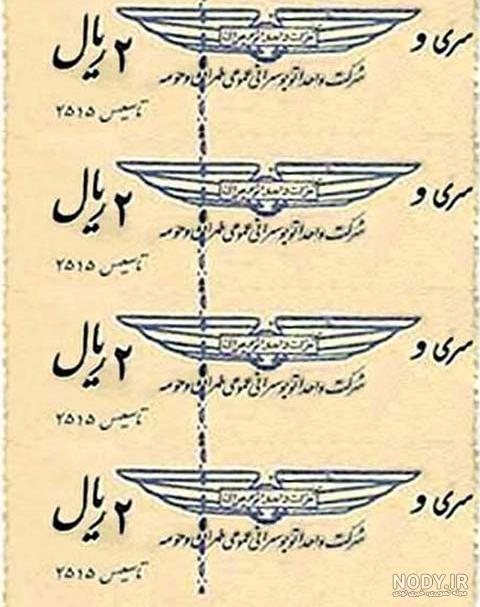 سری و
شرکت واحد اتوبوسرانی
۲ ریال
شرکت واحد اتوبوسرانی عمومی طهران و حومه
تاسیس ۲۵۱۵
سری و
۲ ریال
شرکت واحد اتوبوسرانی عمومی طهران و حومه
تاسیس ۲۵۱۵
سری و
۲ ریال
شرکت واحد اتوبوسرانی عمومی طهران و حومه
تاسیس ۲۵۱۵
سری و
۲ ریال
شرکت واحد اتوبوسرانی عمومی طهران و حومه
تاسیس ۲۵۱۵
NODY.IR